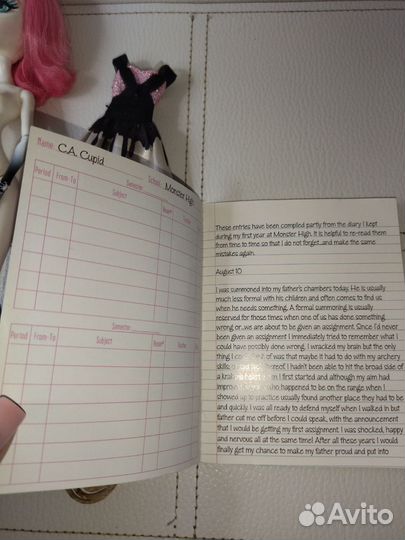 Name: C.A. Cupid
School: Monster High
Semester
Period From-To Subject Room# Teacher
Semester
Period From-To Subject Room# Teacher
These entries have been compiled partly from the diary I kept
during my first year at Monster High. It is helpful to re-read them
from time to time so that I do not forget...and make the same
mistakes again.
August 10
I was summoned into my father's chambers today. He is usually
much less formal with his children and often comes to find us
when he needs something. A formal summoning is usually
reserved for those times when one of us has done something
wrong or...we are about to be given an assignment. Since I'd never
been given an assignment I immediately tried to remember what I
could have possibly done wrong. I wracked my brain but the only
thing I could think of was that maybe it had to do with my archery
skills or lack thereof. I hadn't been able to hit the broad side of
a when I first started and although my aim had
improved, who happened to be on the range when I
showed up to practice usually found another place they had to be
and quickly. I was all ready to defend myself when I walked in but
father cut me off before I could speak, with the announcement
that I would be getting my first assignment. I was shocked, happy
and nervous all at the same time! After all these years I would
finally get my chance to make my father proud and put into
Avito